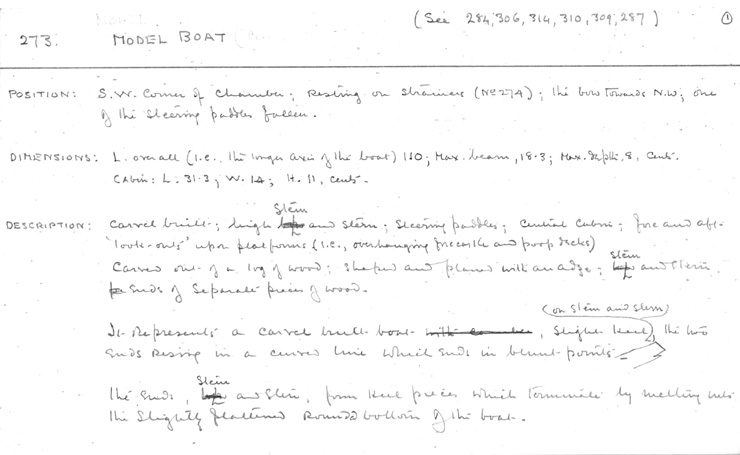 (See 284, 306, 314, 310, 309, 287) 1
273. MODEL BOAT
POSITION: S.W. Corner of Chamber; Resting on Strainers (No 274); the bow towards N.W; one
of the steering paddles fallen.
DIMENSIONS: L. overall (i.e., the longer axis of the boat) 110; Max. beam, 18.3; Max. depth, 8, cents.
Cabin: L. 31.3; W. 14; H. 11, cents.
Stem
DESCRIPTION: Carvel built; high and stern; Steering paddles; Central Cabin; fore and aft
"look-outs" upon platforms (i.e., overhanging forecastle and poop decks)
Stem
Carved out of a log of wood; shaped and planed with an adze; and stern
Ends of Separate pieces of wood.
(on stem and stern)
It Represents a carvel built boat, Slight keel, the two
ends Rising in a curved line which ends in blunt points
Stem
The Ends, and stern, form keel pieces which terminate by melting into
the Slightly flattened Rounded bottom of the boat.